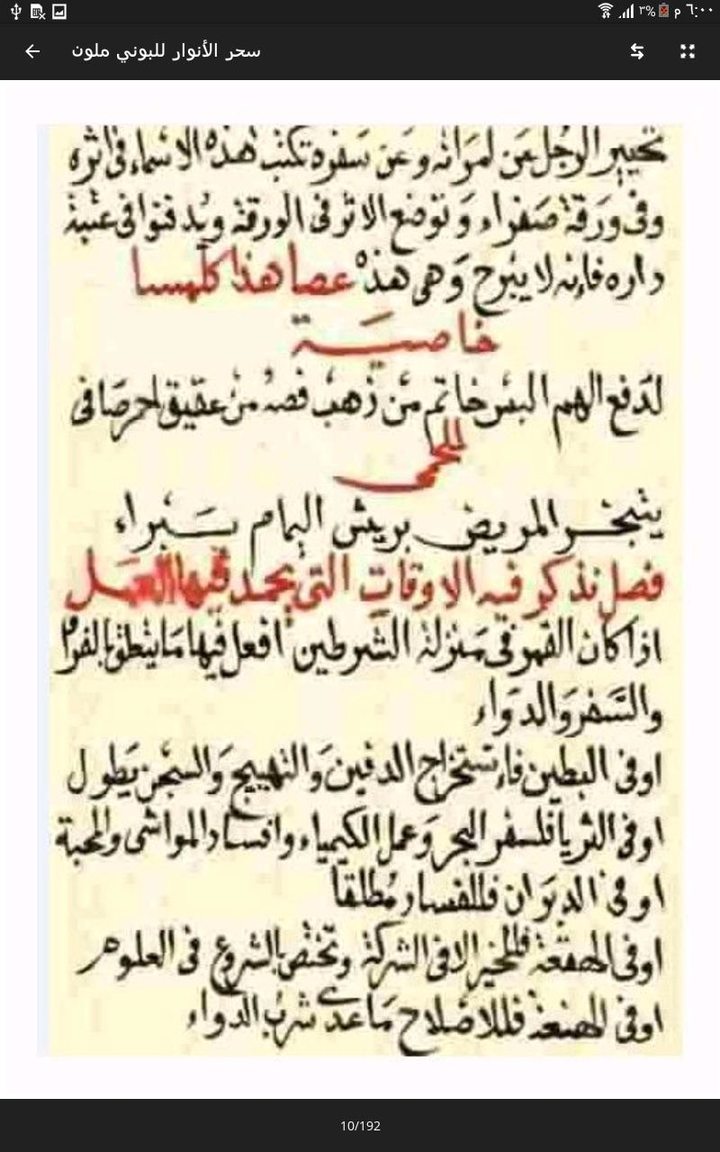 ٦:٠٠ م ٣%
سحر الأنوار للبوني ملون
تحيير الرجل عن امراته وعن سفره تكتب هذه الاسماء فى اثره
وفى ورقة صفراء وتوضع الاثر فى الورقة ويدفنوا فى عتبة
داره فإنه لا يبرح وهى هذه عصا هذا كلهسا
خاصية
لدفع الهم البس خاتم من ذهب فصه من عقيق احمر صافى
للحمى
يتبخر المريض بريش اليمام يبراء
فصل نذكر فيه الاوقات التى يحمد فيها العمل
اذا كان القمر فى منزلة الشرطين افعل فيها ما يتعلق
والسفر والدواء
اوفى البطين فاستخراج الدفين والتهييج والسجن يطول
اوفى الثريا فلسفر البحر وعمل الكيمياء وافساد المواشى والمحبة
اوفى الدبران فللفساد مطلقا
اوفى الهقعة فللخير الا فى الشركة وتختص بالشروع فى العلوم
اوفى الهنعة فللاصلاح ما عدى شرب الدواء
10/192